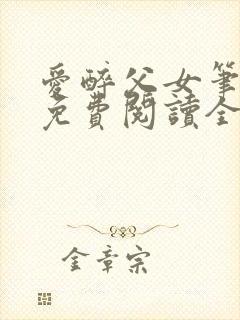 愛醉父女筆
免費閱讀全
金章宗